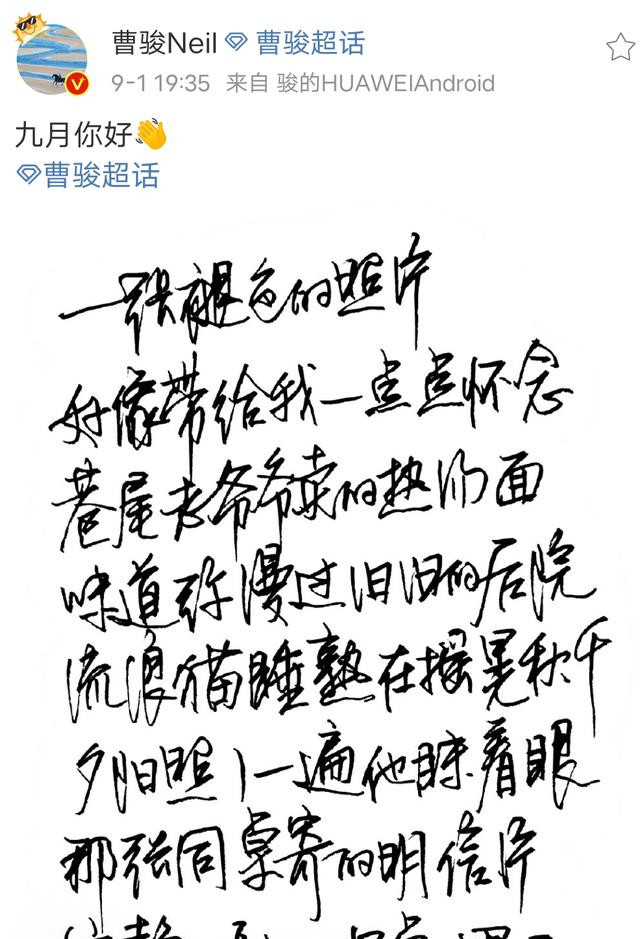 曹骏Neil 曹骏超话
9-1 19:35 来自 骏的HUAWEIAndroid
九月你好👋
曹骏超话
一张褪色的照片
好像带给我一点点怀念
巷尾老爷爷卖的热汤面
味道弥漫过旧旧的后院
流浪猫睡熟在摇晃秋千
夕阳照了一遍他眯着眼
那张同桌寄的明信片